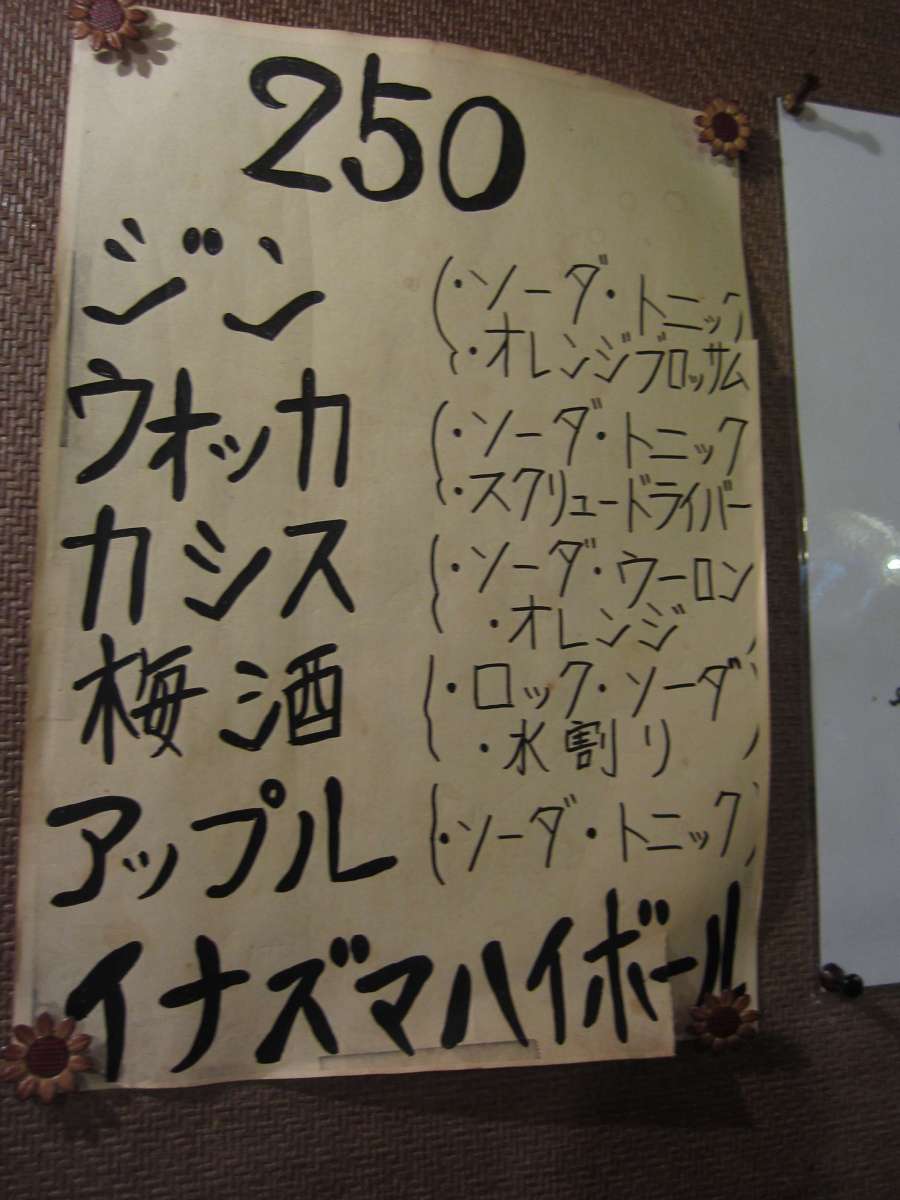 250
ジン (・ソーダ・トニック
・オレンジブロッサム
ウオッカ (・ソーダ・トニック
・スクリュードライバー
カシス (・ソーダ・ウーロン
・オレンジ)
梅酒 (・ロック・ソーダ
・水割り)
アップル (・ソーダ・トニック)
イナズマハイボール